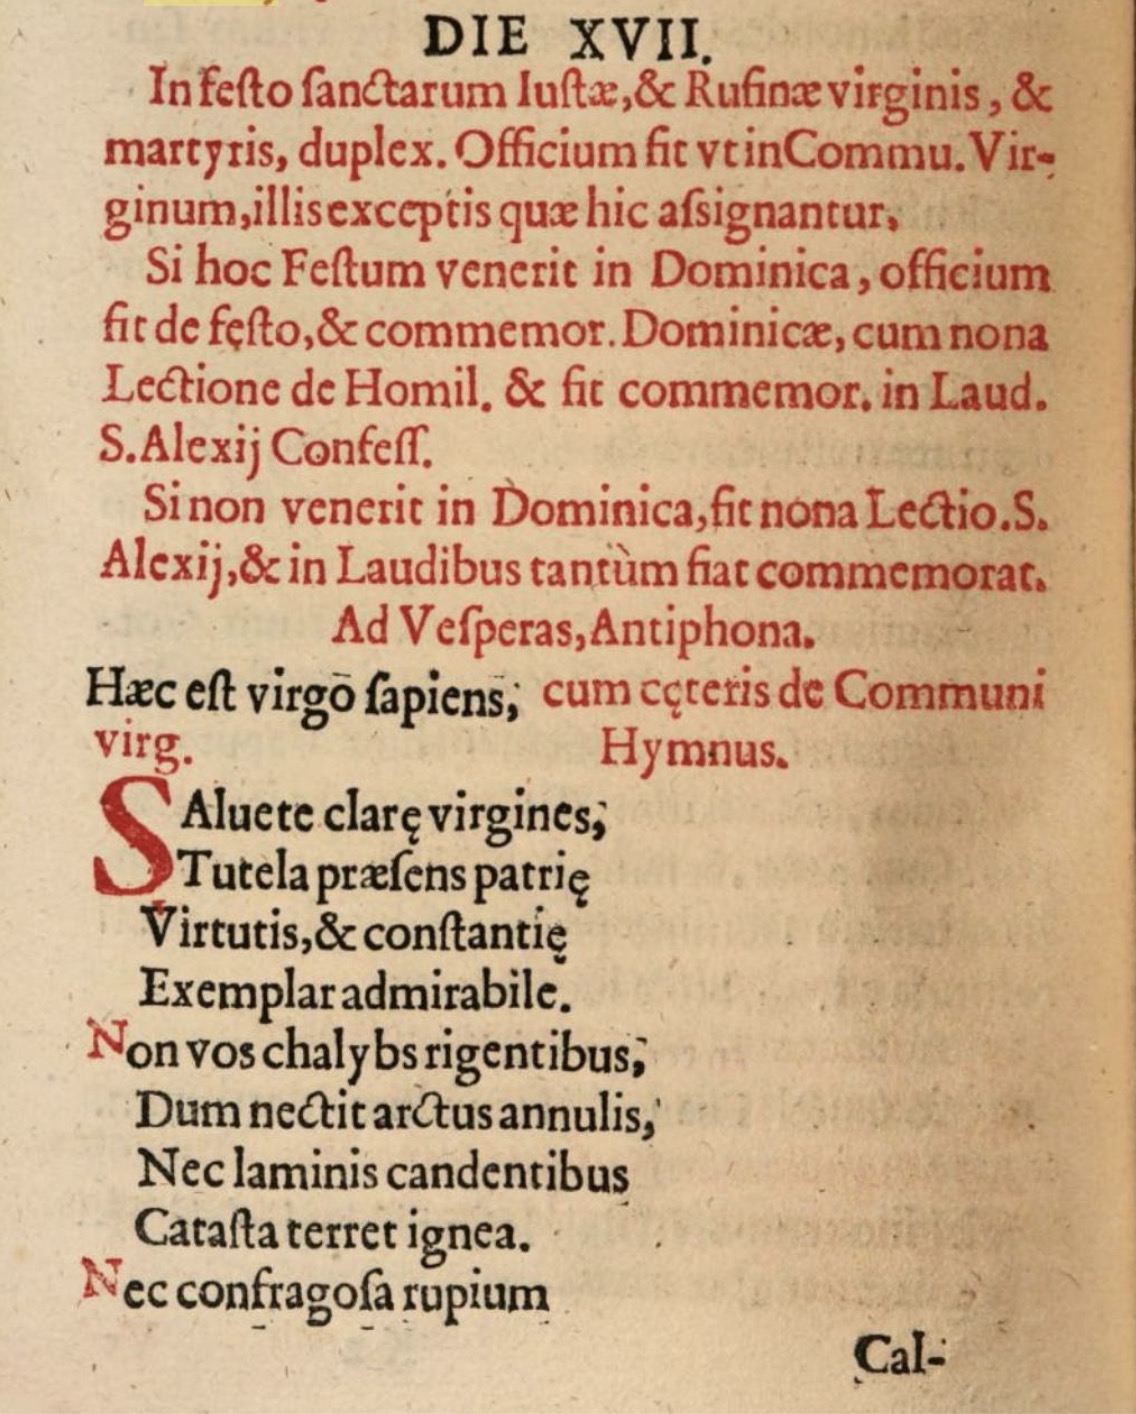 DIE XVII.
In feſto ſanctarum Iuſtæ,& Rufinæ virginis, &
martyris, duplex. Officium fit vt in Commu. Vir-
ginum, illis exceptis quæ hic aſsignantur.
Si hoc Feſtum venerit in Dominica, officium
fit de fęſto,& commemor. Dominicæ, cum nona
Lectione de Homil. & fit commemor. in Laud.
S. Alexij Confeſſ.
Si non venerit in Dominica, fit nona Lectio. S.
Alexij,& in Laudibus tantùm fiat commemorat.
Ad Veſperas, Antiphona.
Hæc eſt virgo ſapiens, cum cęteris de Communi
virg. Hymnus.
SAluete clarę virgines,
Tutela præſens patrię
Virtutis,& conſtantię
Exemplar admirabile.
Non vos chalybs rigentibus,
Dum nectit arctus annulis,
Nec laminis candentibus
Cataſta terret ignea.
Nec confragoſa rupium
Cal-